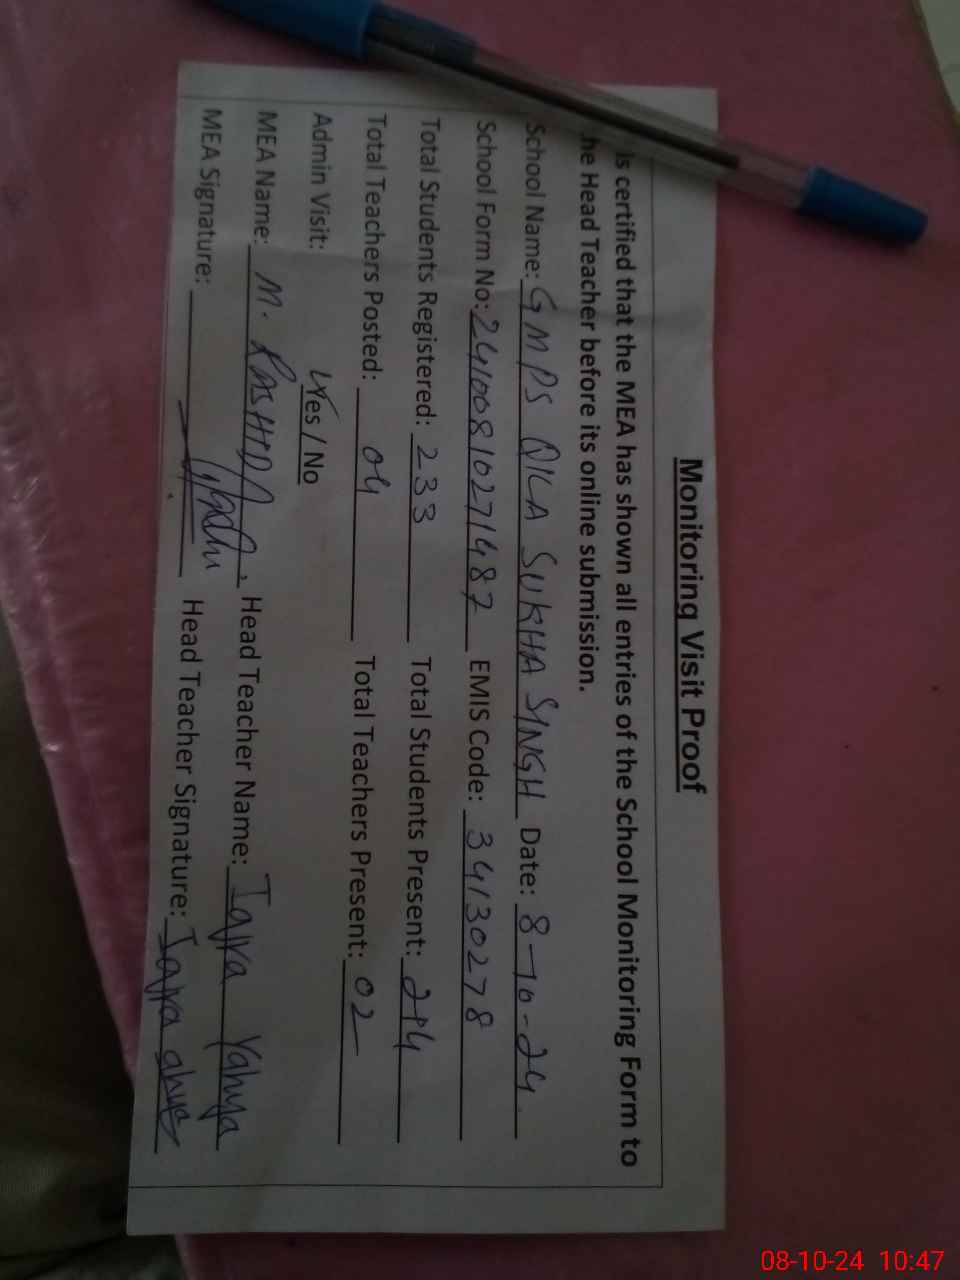 Monitoring Visit Proof
is certified that the MEA has shown all entries of the School Monitoring Form to
he Head Teacher before its online submission.
School Name: GMPS QILA SUKHA SINGH Date: 8-10-24
School Form No: 24100810271487 EMIS Code: 34130278
Total Students Registered: 233 Total Students Present: 214
Total Teachers Posted: 04 Total Teachers Present: 02
Admin Visit: Yes / No
MEA Name: M. RASHID Head Teacher Name: Iqra Yahya
MEA Signature: Head Teacher Signature: Iqra
08-10-24 10:47